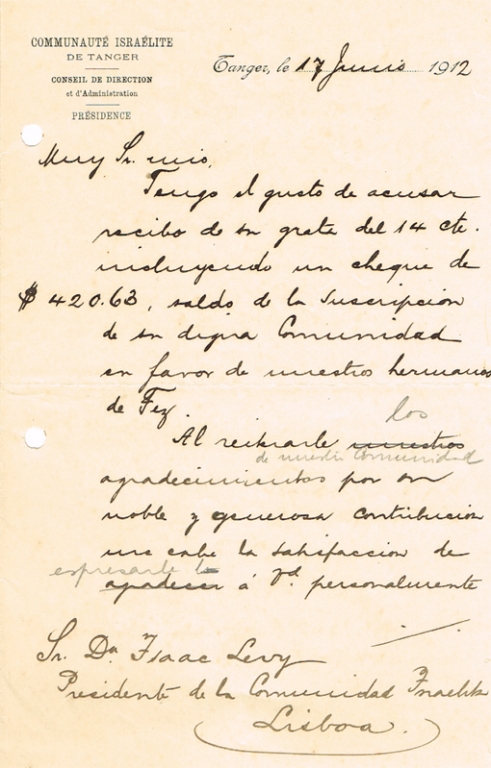 COMMUNAUTÉ ISRAÉLITE
DE TANGER
CONSEIL DE DIRECTION
et d'Administration
PRÉSIDENCE
Tanger, le 17 Junio 1912
Muy Sr. mio,
Tengo el gusto de acusar
recibo de su grata del 14 cte.
incluyendo un cheque de
$ 420.63, saldo de la Suscripcion
de su digna Comunidad
en favor de nuestros hermanos
de Fez.
los
Al reiterarle nuestros
de nuestra Comunidad
agradecimientos por su
noble y generosa contribucion
me cabe la satisfaccion de
expresarle
agradecer á Vd. personalmente
Sr. Dn. Isaac Levy
Presidente de la Comunidad Israelita
Lisboa.